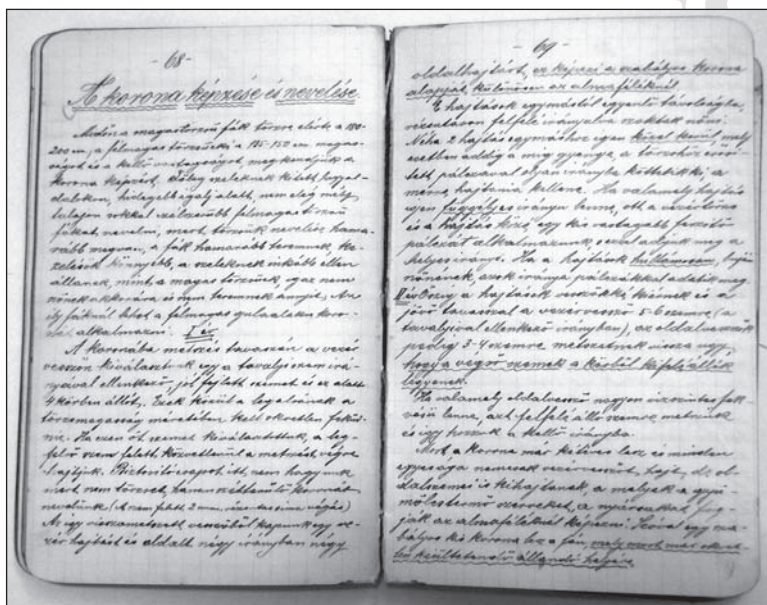 - 68 -
A korona képzése és nevelése.
Midőn a magastörzsű fák törzse elérte a 180-
200 cm, a félmagas törzsűek a 125-150 cm. magas-
ságot és a kellő vastagságot, megkezdjük a
korona képzést. Főleg szeleknek kitett hegyol-
dalokon, hidegebb égalj alatt, nem elég mély
talajon sokkal célszerűbb félmagas törzsű
fákat nevelni, mert törzsük nevelése hama-
rább megvan, a fák hamarább teremnek, ke-
zelésük könnyebb, a szeleknek inkább ellen
állanak, mint a magas törzsűek, igaz nem
nőnek akkorára és nem teremnek annyit. Az
ily fáknál lehet a félmagas gulaalakú koro-
nát alkalmazni. I év
A koronába metszés tavaszán a vezér
vesszőn kiválasztunk egy a tavalyi szem irá-
nyával ellenkező, jól fejlett szemet és ez alatt
4 körben állót. Ezek közül a legalsónak a
törzsmagasság méretében kell okvetlen feküd-
nie. Ha ezen öt szemet kiválasztottuk, a leg-
felső szem felett közvetlenül a metszést végre
hajtjuk. Biztosító csapot itt nem hagyunk
mert nem törzset, hanem szétterülő koronát
nevelünk. (A szem felett 2 mm. vízszintes sima vágás)
Az így visszametszett vesszőből kapunk egy ve-
zér hajtást és oldalt négy irányban négy
- 69 -
oldalhajtást, ez képezi a szabályos korona
alapját, különösen az almaféléknél.
E hajtások egymástól egyenlő távolságba,
rézsútosan felfelé irányulva szoktak nőni.
Néha 2 hajtás egymáshoz igen közel kerül, mely
esetben addig a míg gyenge, a törzshöz erősí-
tett pálcával olyan irányba köttetik ki, a
merre hajtania kellene. Ha valamely hajtás
igen függélyes irányu lenne, ott a vezértörzs
és a hajtás közé, egy kis vastagabb feszítő
pálcát alkalmazunk, s ezzel adjuk meg a
helyes irányt. Ha a hajtások hullámosan,
nőnének, azok iránya pálcákkal adatik meg.
II év Őszig a hajtások vesszőkké érnek és a
jövő tavasszal a vezérvessző 5-6 szemre (a
tavalyival ellenkező irányban), az oldalvesszők
pedig 3-4 szemre metszetnek vissza úgy,
hogy a végső szemek a körből kifelé állók
legyenek.
Ha valamely oldalvessző nagyon vízszintes fek-
vésü lenne, azt felfelé álló szemre metszünk
és így hozzuk a kellő irányba.
Mert a korona már kétéves lesz és minden
egyes ága nemcsak vezérvesszőt, hajt, de ol-
dalszemei is kihajtanak, a melyek a gyü-
mölcstermő szerveket, a nyársakat fog-
ják az almaféléknél képezni. Szóval egy sza-
bályos kis korona lesz a fán, mely most már okvet-
len kiültetendő állandó helyére.